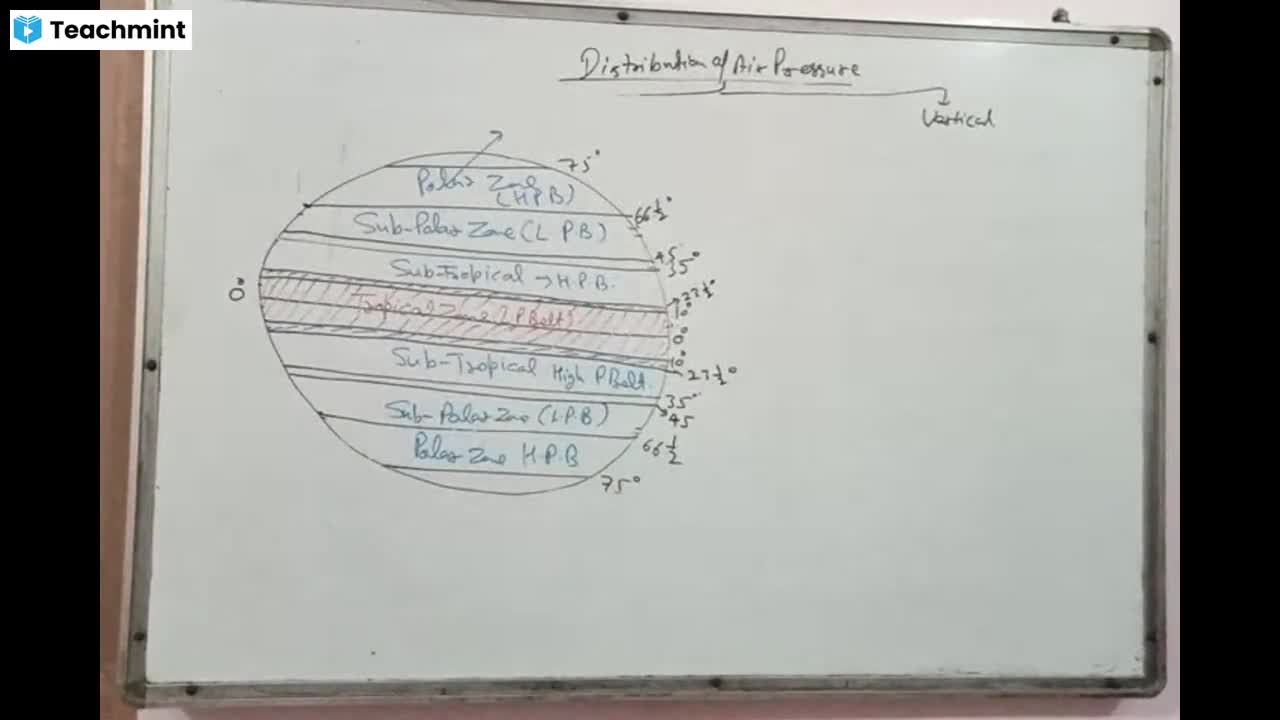 Teachmint
Distribution of Air Pressure
Vertical
75°
Polar Zone
(HPB)
66 1/2°
Sub-Polar Zone (L PB)
45
35°
Sub-Tropical → H.P.B.
23 1/2°
10°
0°
Tropical Zone (LPBelt)
0°
10°
Sub-Tropical High PBelt.
23 1/2°
35°
Sub-Polar Zone (L.P.B)
45
66 1/2
Polar Zone H.P.B
75°